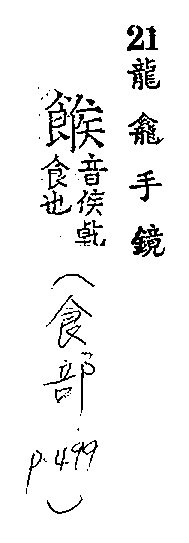 21龍龕手鏡
餱音侯乾
食也
(食部
p.499)